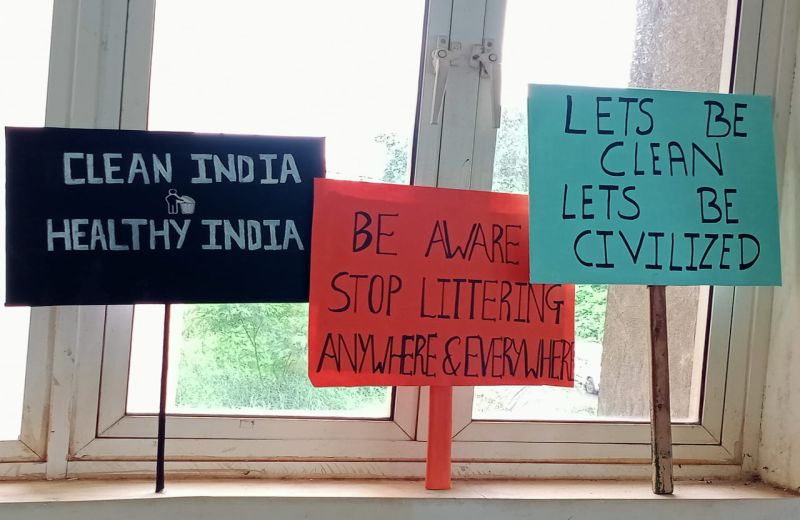 CLEAN INDIA
HEALTHY INDIA
BE AWARE
STOP LITTERING
ANYWHERE & EVERYWHERE
LETS BE
CLEAN
LETS BE
CIVILIZED